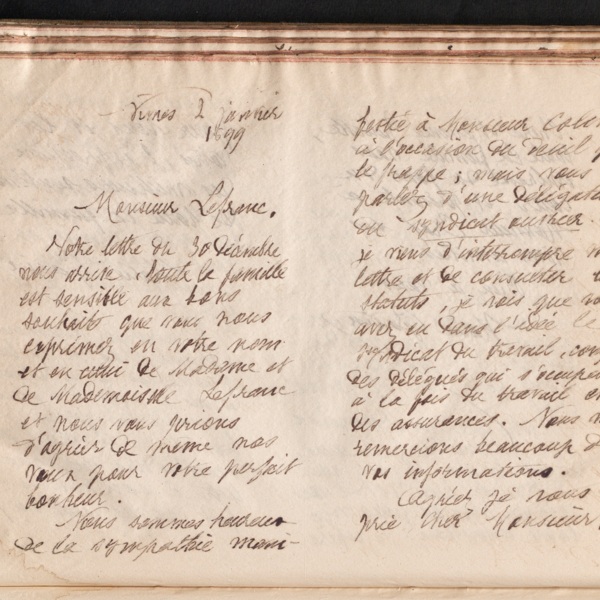 2 janvier
1899
Monsieur Lefranc.
Votre lettre du 30 décembre
nous arrive. Toute la famille
est sensible aux bons
souhaits que vous nous
exprimez en votre nom
et en celui de Madame et
de Mademoiselle Lefranc
et nous vous prions
d'agréer de même nos
vœux pour votre parfait
bonheur.
Nous sommes heureux
de la sympathie mani-
festée à Monsieur
à l'occasion du deuil
le frappe ; mais vous
parlez d'une
du syndicat ouvrier.
je viens d'interrompre
lettre et de consulter
statuts, je vois que
avez eu dans l'idée le
syndicat du travail,
des délégués qui
à la fois du travail et
des assurances. Nous
remercions beaucoup
vos informations.
Agréez je vous
prie cher Monsieur